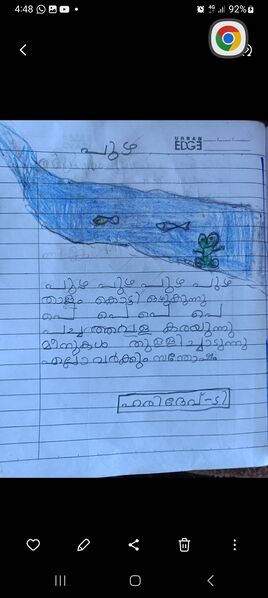 4:48
92%
പുഴ
URBAN
EDGE
പുഴ പുഴ പുഴ പുഴ
താളം കൊട്ടി ഒഴുകുന്നു
പെ പെ പെ പെ
പച്ചത്തവള കരയുന്നു
മീനുകൾ തുള്ളിച്ചാടുന്നു
എല്ലാവർക്കും സന്തോഷം
ഹരിദേവ്-